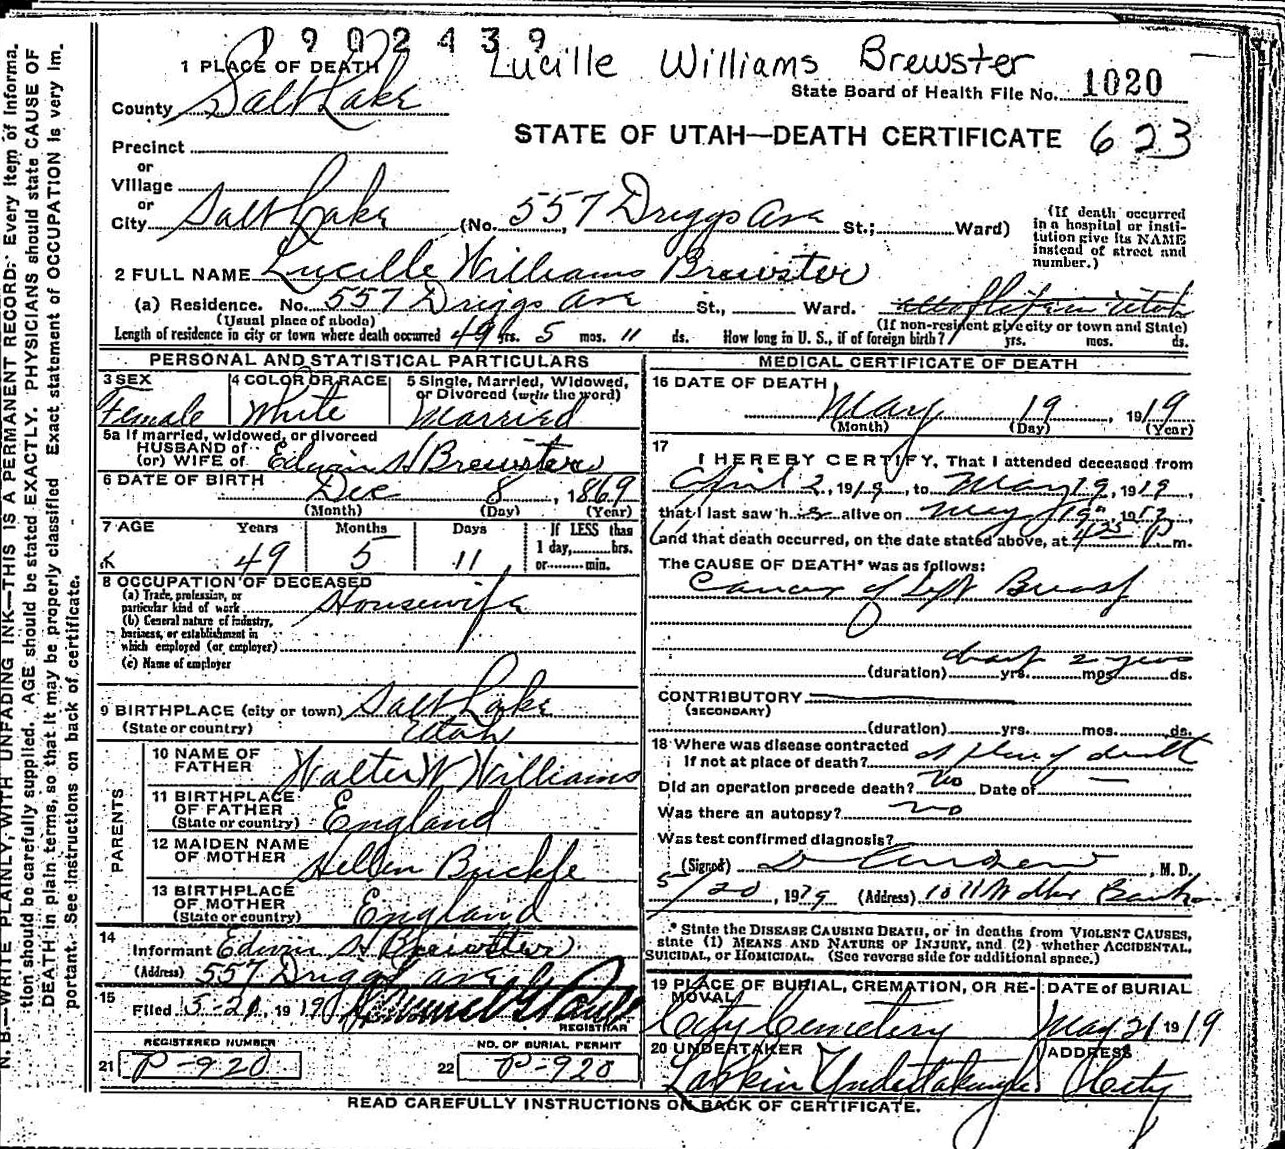 1902439
Lucille Williams Brewster
1 PLACE OF DEATH
State Board of Health File No. 1020
County Salt Lake
STATE OF UTAH—DEATH CERTIFICATE 623
Precinct
or
Village
or
City Salt Lake (No. 557 Driggs Ave St.; Ward)
(If death occurred in a hospital or institution give its NAME instead of street and number.)
2 FULL NAME Lucille Williams Brewster
(a) Residence. No. 557 Driggs Ave St., Ward.
(Usual place of abode)
(If non-resident give city or town and State)
Length of residence in city or town where death occurred 49 yrs. 5 mos. 11 ds. How long in U. S., if of foreign birth? yrs. mos. ds.
PERSONAL AND STATISTICAL PARTICULARS
3 SEX 4 COLOR OR RACE 5 Single, Married, Widowed, or Divorced (write the word)
Female White Married
5a If married, widowed, or divorced
HUSBAND of
(or) WIFE of Edwin H Brewster
6 DATE OF BIRTH Dec 8, 1869
(Month) (Day) (Year)
7 AGE Years Months Days If LESS than
1 day, hrs.
or min.
49 5 11
8 OCCUPATION OF DECEASED
(a) Trade, profession, or particular kind of work Housewife
(b) General nature of industry, business, or establishment in which employed (or employer)
(c) Name of employer
9 BIRTHPLACE (city or town) Salt Lake
(State or country) Utah
PARENTS
10 NAME OF FATHER Walter W Williams
11 BIRTHPLACE OF FATHER (State or country) England
12 MAIDEN NAME OF MOTHER Hellen Buckle
13 BIRTHPLACE OF MOTHER (State or country) England
14 Informant Edwin H Brewster
(Address) 557 Driggs Ave
15 Filed 5-21, 1919
REGISTRAR
REGISTERED NUMBER NO. OF BURIAL PERMIT
21 P-920 22 P-920
MEDICAL CERTIFICATE OF DEATH
16 DATE OF DEATH
May 19, 1919
(Month) (Day) (Year)
17 I HEREBY CERTIFY, That I attended deceased from
April 2, 1919, to May 19, 1919,
that I last saw h alive on May 19th 1919,
and that death occurred, on the date stated above, at 4 25 P m.
The CAUSE OF DEATH* was as follows:
Cancer of Left Breast
(duration) about 2 years yrs. mos. ds.
CONTRIBUTORY
(SECONDARY)
(duration) yrs. mos. ds.
18 Where was disease contracted
If not at place of death? at place of death
Did an operation precede death? No Date of —
Was there an autopsy? no
Was test confirmed diagnosis?
(Signed) , M. D.
5/20, 1919 (Address) 1011 Walker Bank
* State the DISEASE CAUSING DEATH, or in deaths from VIOLENT CAUSES,
state (1) MEANS AND NATURE OF INJURY, and (2) whether ACCIDENTAL,
SUICIDAL, or HOMICIDAL. (See reverse side for additional space.)
19 PLACE OF BURIAL, CREMATION, OR REMOVAL DATE OF BURIAL
City Cemetery May 21 1919
20 UNDERTAKER ADDRESS
Larkin Undertaking City
READ CAREFULLY INSTRUCTIONS ON BACK OF CERTIFICATE.
N. B.—WRITE PLAINLY, WITH UNFADING INK—THIS IS A PERMANENT RECORD. Every item of informa-
tion should be carefully supplied. AGE should be stated EXACTLY. PHYSICIANS should state CAUSE OF
DEATH in plain terms, so that it may be properly classified. Exact statement of OCCUPATION is very im-
portant. See instructions on back of certificate.